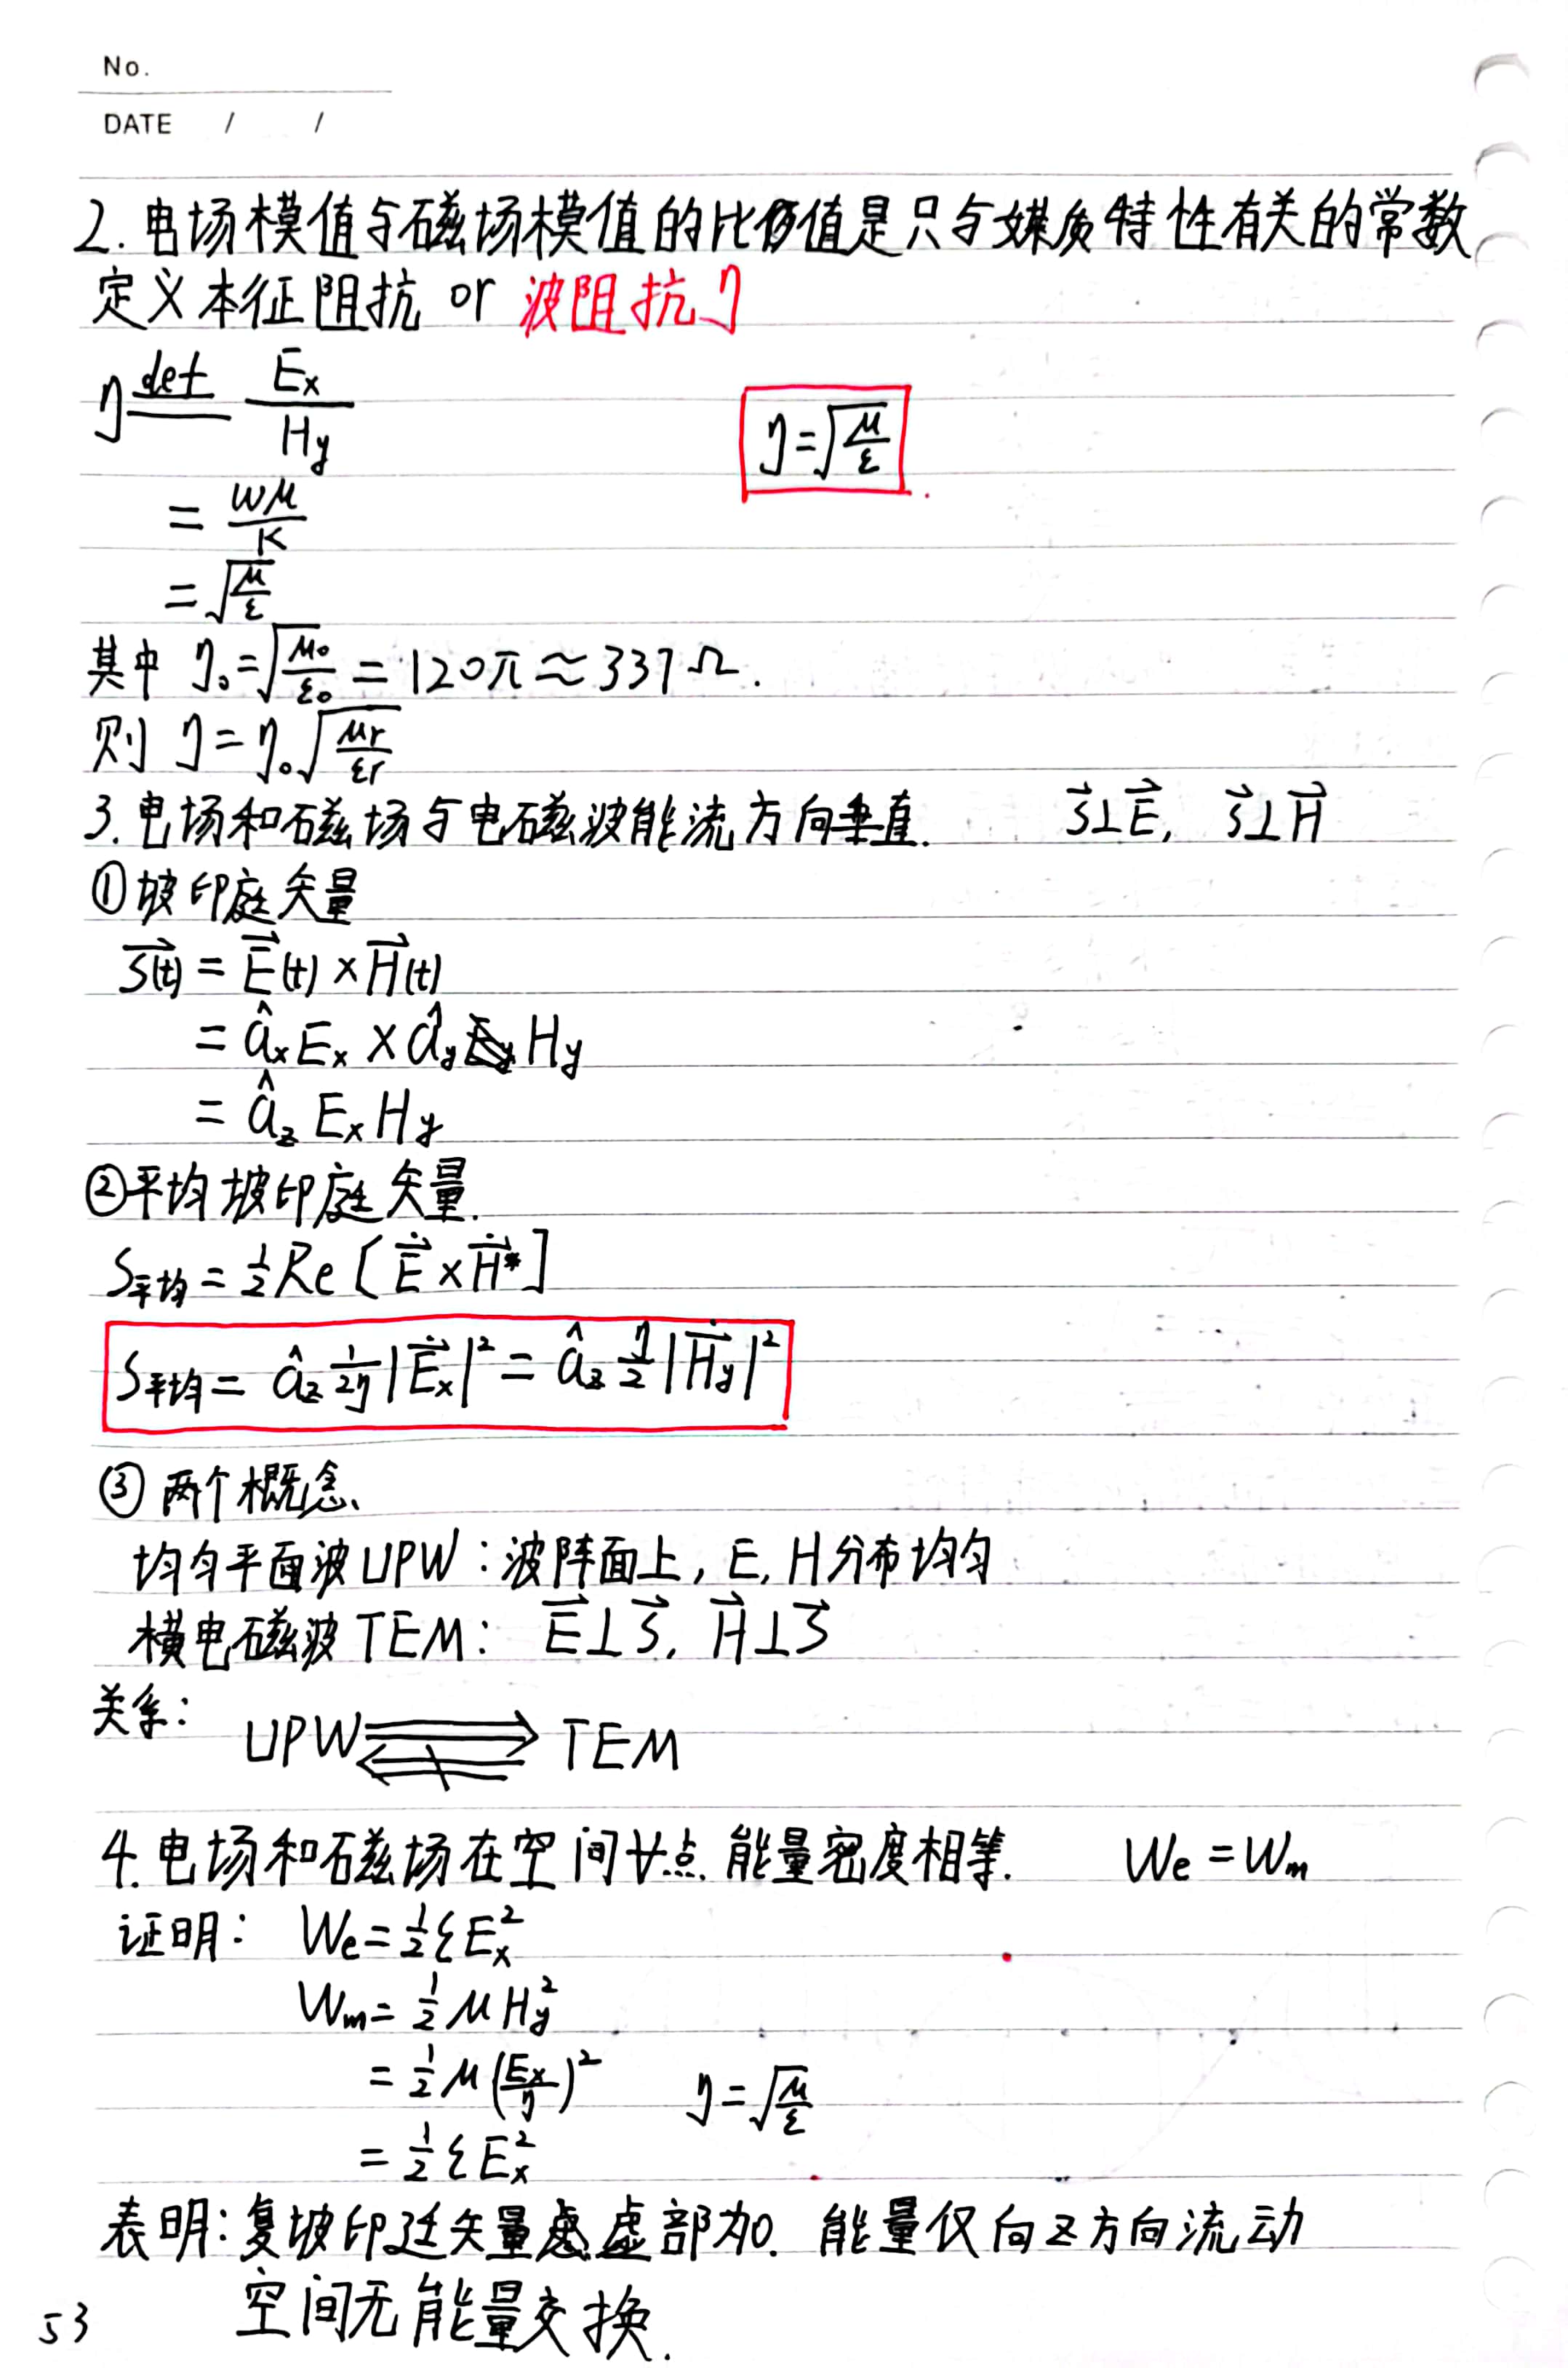 No.
DATE / /
2. 电场模值与磁场模值的比值是只与媒质特性有关的常数
定义本征阻抗 or 波阻抗η
η def Ex/Hy
η=√(μ/ε)
= ωμ/K
= √(μ/ε)
其中 η₀=√(μ₀/ε₀) = 120π≈337Ω.
则 η=η₀√(μr/εr)
3. 电场和磁场与电磁波能流方向垂直. S⃗⊥E⃗, S⃗⊥H⃗
①坡印庭矢量
S⃗(t) = E⃗(t) × H⃗(t)
= âx Ex × ây Hy
= âz Ex Hy
②平均坡印庭矢量.
S平均 = ½Re[E⃗̇×H⃗̇*]
S平均 = âz 1/(2η) |E⃗̇x|² = âz η/2 |H⃗̇y|²
③ 两个概念、
均匀平面波UPW: 波阵面上, E, H分布均匀
横电磁波TEM: E⃗⊥S⃗, H⃗⊥S⃗
关系: UPW ⇄ TEM
4. 电场和磁场在空间 点 能量密度相等. We = Wm
证明: We = ½εEx²
Wm = ½μHy²
= ½μ(Ex/η)² η=√(μ/ε)
= ½εEx²
表明: 复坡印廷矢量虚部为0. 能量仅向z方向流动
空间无能量交换.
53